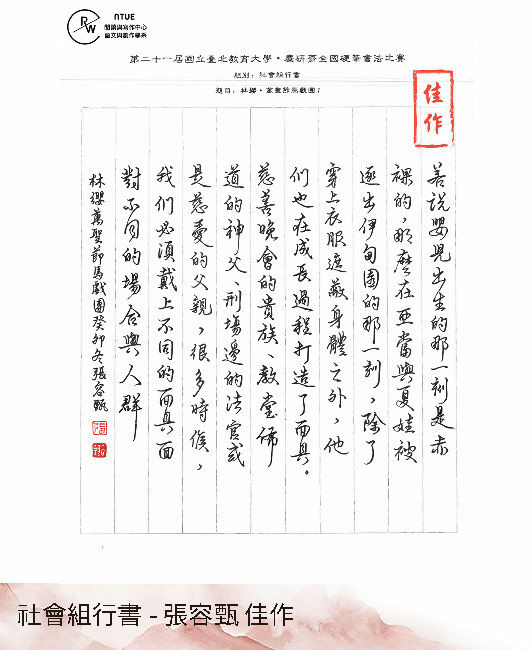 RW
NTUE
閱讀與寫作中心
語文與創作學系
第二十一屆國立臺北教育大學・麋研齋全國硬筆書法比賽
組別：社會組行書
題目：林纓・萬聖節馬戲團7
佳作
若說嬰兒出生的那一刻是赤
裸的，那麼在亞當與夏娃被
逐出伊甸園的那一刻，除了
穿上衣服遮蔽身體之外，他
們也在成長過程打造了面具。
慈善晚會的貴族、教堂佈
道的神父、刑場邊的法官或
是慈愛的父親，很多時候，
我們必須戴上不同的面具，面
對不同的場合與人群
林纓萬聖節馬戲團癸卯冬張容甄
社會組行書 - 張容甄 佳作